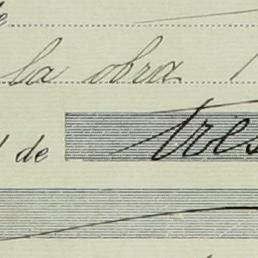 de
la obra
l de tres